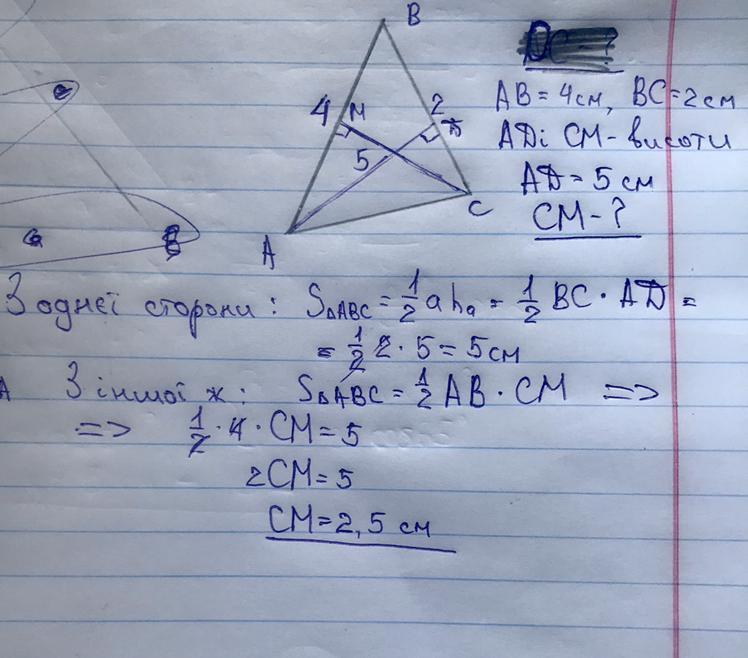 B
4 M 2 D
5
A C
AB = 4см, BC = 2см
AD і CM - висоти
AD = 5 см
CM - ?
З однєї сторони: S△ABC = 1/2 a hₐ = 1/2 BC · AD =
= 1/2 2 · 5 = 5см
З іншої ж: S△ABC = 1/2 AB · CM =>
=> 1/2 · 4 · CM = 5
2CM = 5
CM = 2,5 см